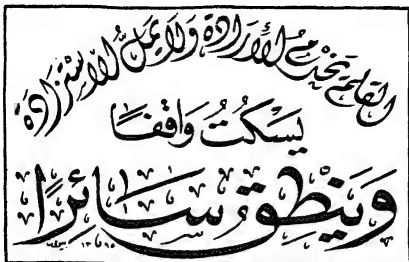 القلم يخدم الإرادة ولا يمل الاستزادة
يسكت واقفا
وينطق سائرا